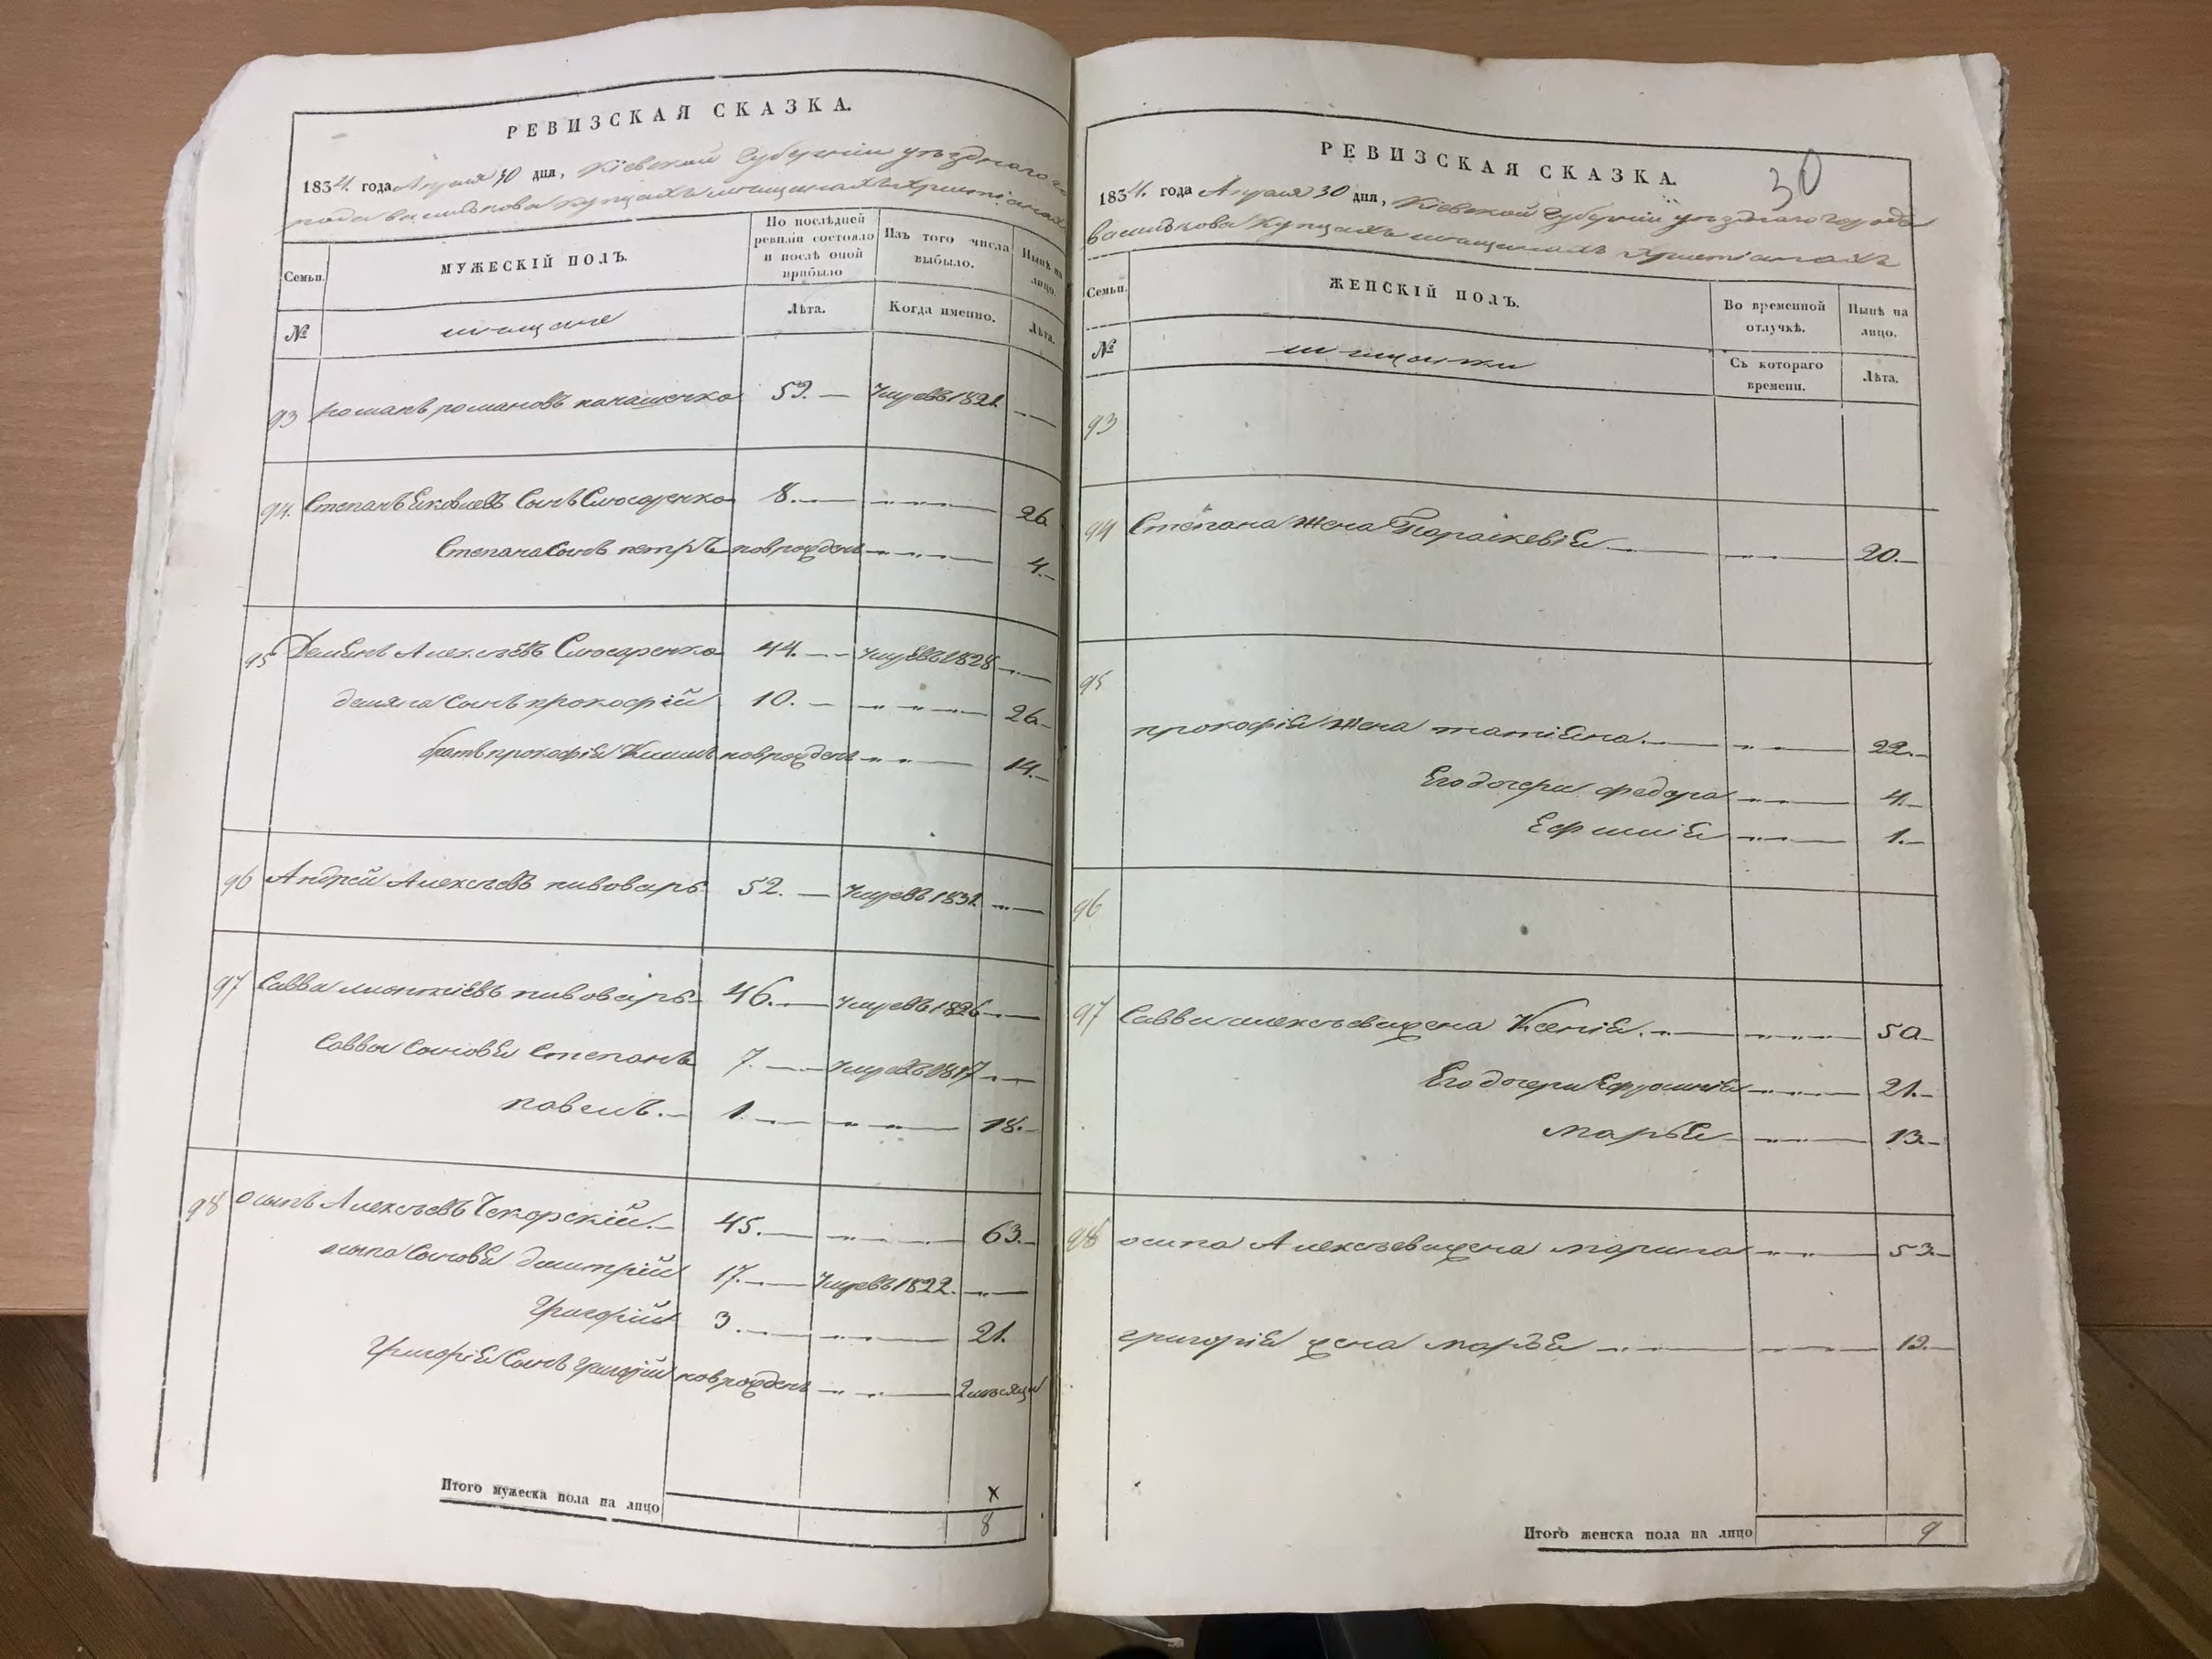 РЕВИЗСКАЯ СКАЗКА.
1834. года Апреля 30 дня, Кіевской Губерніи уѣзднаго го
рода василькова купцахъ мещанахъ христіанах
Семьи.
МУЖЕСКІЙ ПОЛЪ.
По послѣдней ревизіи состояло и послѣ оной прибыло
Изъ того числа выбыло.
Нынѣ на лицо.
№
мещане
Лѣта.
Когда именно.
Лѣта.
93 романовъ 52. — Умревъ 1821
94. Степанъ Яковлевъ Сынъ Слюсаренко 8. — 26
Степана Сынъ петръ новрожденъ 4.—
95 Демянъ Алексѣевъ Слюсаренко 44. — Умревъ 1828
демяна Сынъ прокофій 10. — 26—
братъ прокофія новрожденъ 14.—
96 Андрей Алексѣевъ пивоваръ 52. — Умревъ 1831
97 Савва пивоваръ 46. — Умревъ 1826 —
Саввы Сыновья Степанъ 7. — Умревъ 1817 —
павелъ. — 1. — 18.—
98 осипъ Алексѣевъ 45. — 63.—
осипа Сыновья дмитрій 17. — Умревъ 1822. —
Григорій 3. — 21.
Григорія Сынъ Григорій новрожденъ — 2 мѣсяца
Итого мужеска пола на лицо
x
8
30
РЕВИЗСКАЯ СКАЗКА.
1834. года Апреля 30 дня, Кіевской Губерніи уѣзднаго города
василькова Купцахъ мещанахъ христіанахъ
Семьи.
ЖЕНСКІЙ ПОЛЪ.
Во временной отлучкѣ.
Нынѣ на лицо.
№
мещанки
Съ котораго времени.
Лѣта.
93
94 Степана жена Параскевія — 20.—
95
прокофія жена татіяна. — 22.—
Его дочери федора — 4.—
Ефимія — 1.—
96
97 Саввы алексѣева жена Ксенія. — 50—
Его дочери Ефросинія — 21.—
марья — 13—
98 осипа Алексѣева жена марина — 53—
григорія жена марья — 19.—
Итого женска пола на лицо
9